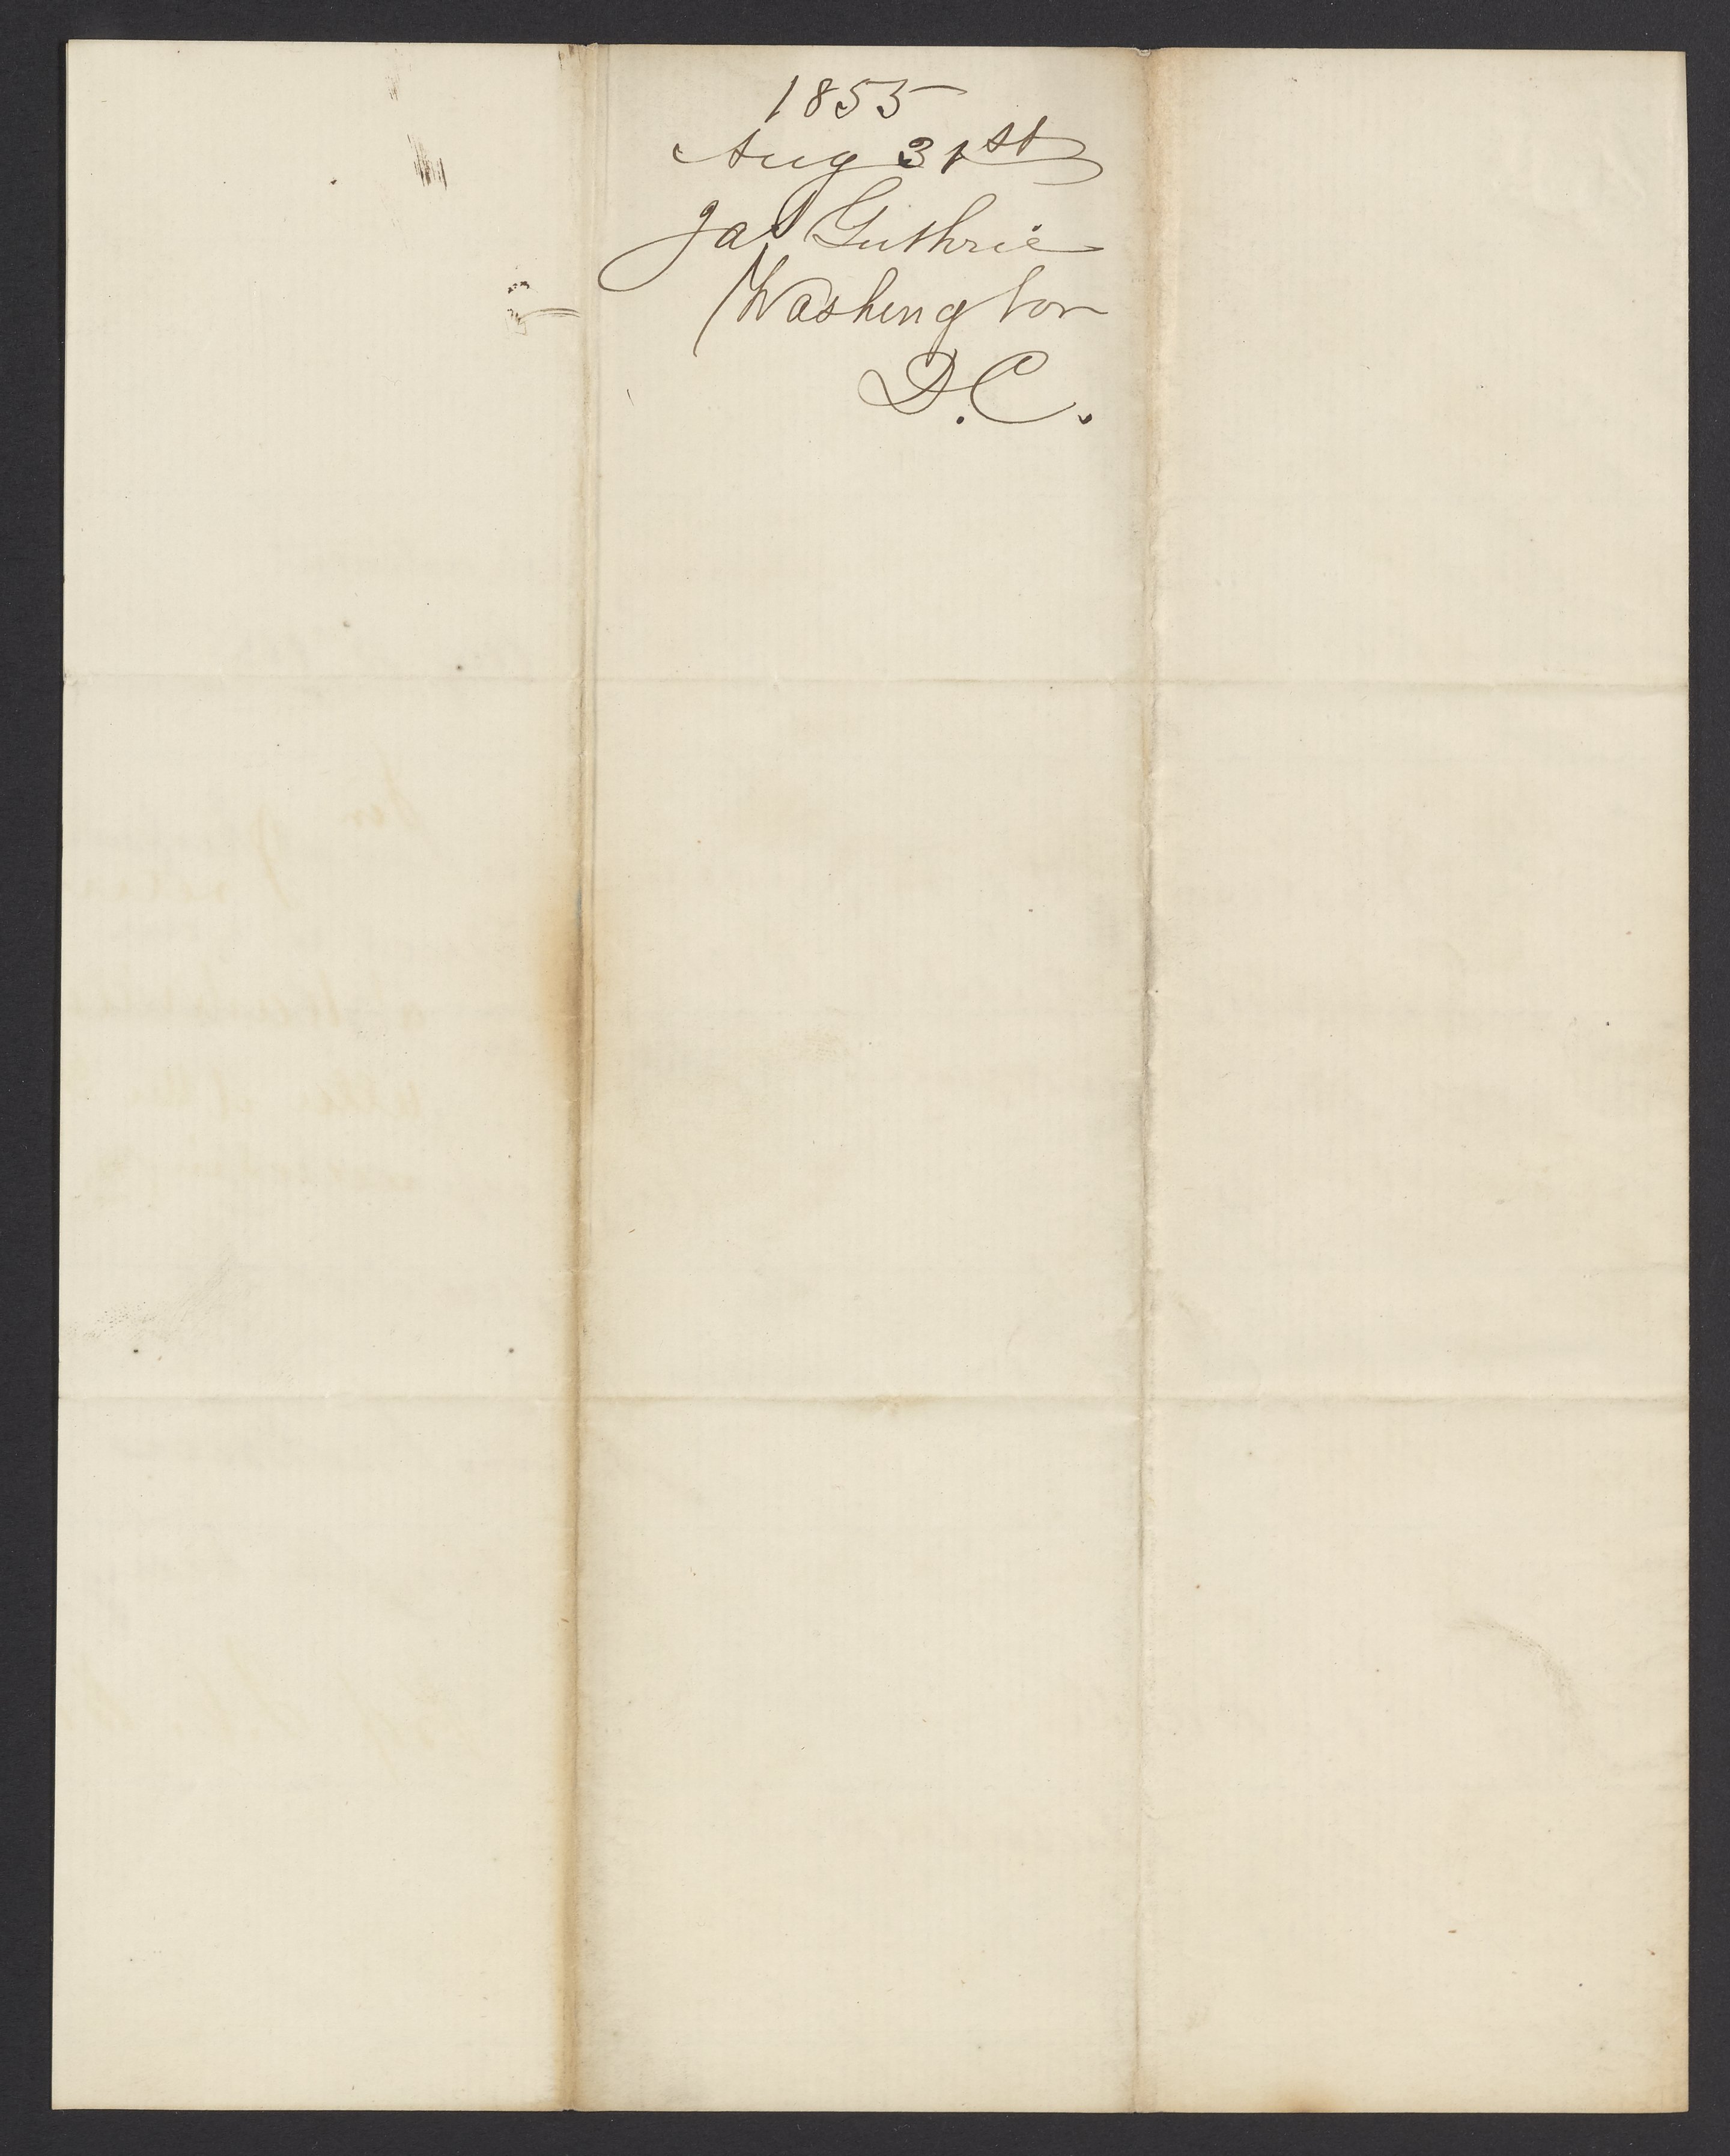 1855
Aug 31st
Jas Guthrie
Washington
D.C.